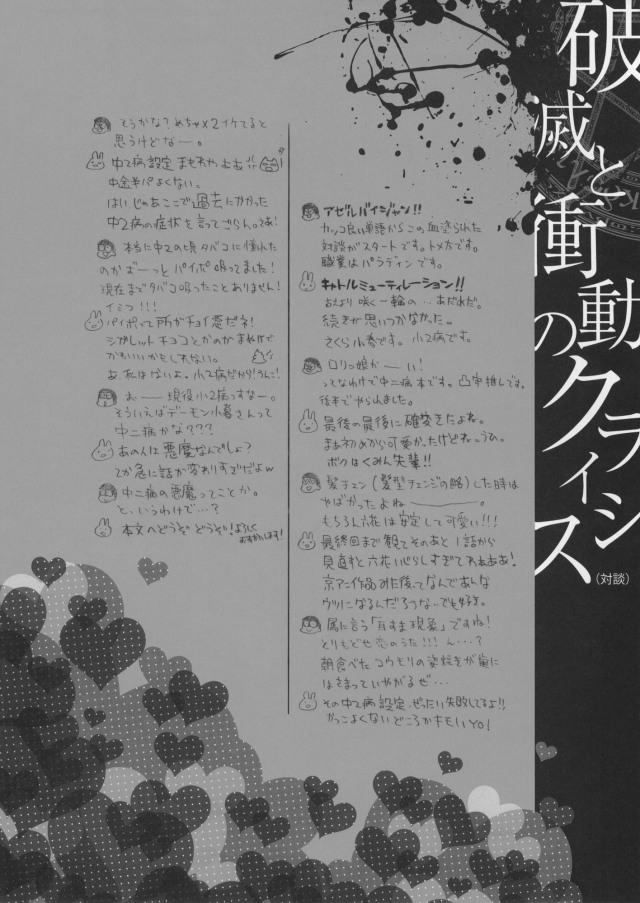 破滅と衝動のクライシス
(対談)
アゼルバイジャン!!
カッコ良い単語からこの血塗られた
対談がスタートです。トメ方です。
職業はパラディンです。
キャトルミューティレーション!!
咲く一輪の…あだれだ。
続きが思いつかなかった。
さくら小春です。小2病です。
ロリっ娘か―い!
ってなわけで中二病本です。凸守推しです。
後半でやられました。
最後の最後に確変きたよね。
まぁ初めから可愛かったけどね。うひ。
ボクはくみん先輩!!
髪チェン(髪型チェンジの略)した時は
やばかったよね―――。
もちろん六花は安定して可愛い!!!
最終回まで観てそのあと1話から
見直すと六花いじらしすぎてあああ!
京アニ作品みた後ってなんであんな
ウツになるんだろうな~でも好き。
俗に言う「耳すま現象」ですね!
とりもどせ恋のうた!!!ん…?
朝食べたコウモリの姿焼きが歯に
はさまっていやがるぜ…
その中2病設定、ぜったい失敗してるよ!!
かっこよくないどころかキモいYO!
そうかな?めちゃ×2イケてると
思うけどな―。
中2病設定まもれや
中途半パよくない。
はいじゃあここで過去にかかった
中2病の症状を言ってごらん。さあ!
本当に中2の頃タバコに憧れた
のかず―っとパイポ吸ってました!
現在までタバコ吸ったことありません!
イミフ!!!
パイポって所がチョイ悪だネ!
シガレットチョコとかのがまぬけで
かわいいかもしれない。
あ、私はないよ。小2病だから!うんこ!
お―現役小2病っすな―。
そういえばデーモン小暮さんって
中二病かな???
あの人は悪魔なんでしょ?
てか急に話が変わりすぎだよw
中二病の悪魔ってことか。
と、いうわけで…?
本文へどうぞどうぞ!よろしく
おねがいします!